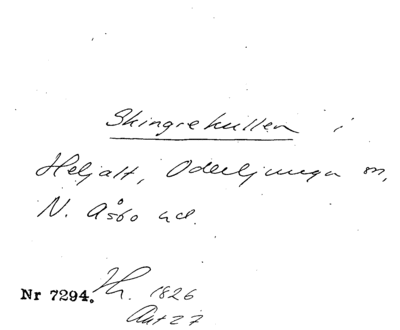 Skingrekullen i
Heljalt, Oderljunga sn,
N. Åsbo hd.
Nr 7294. 1826